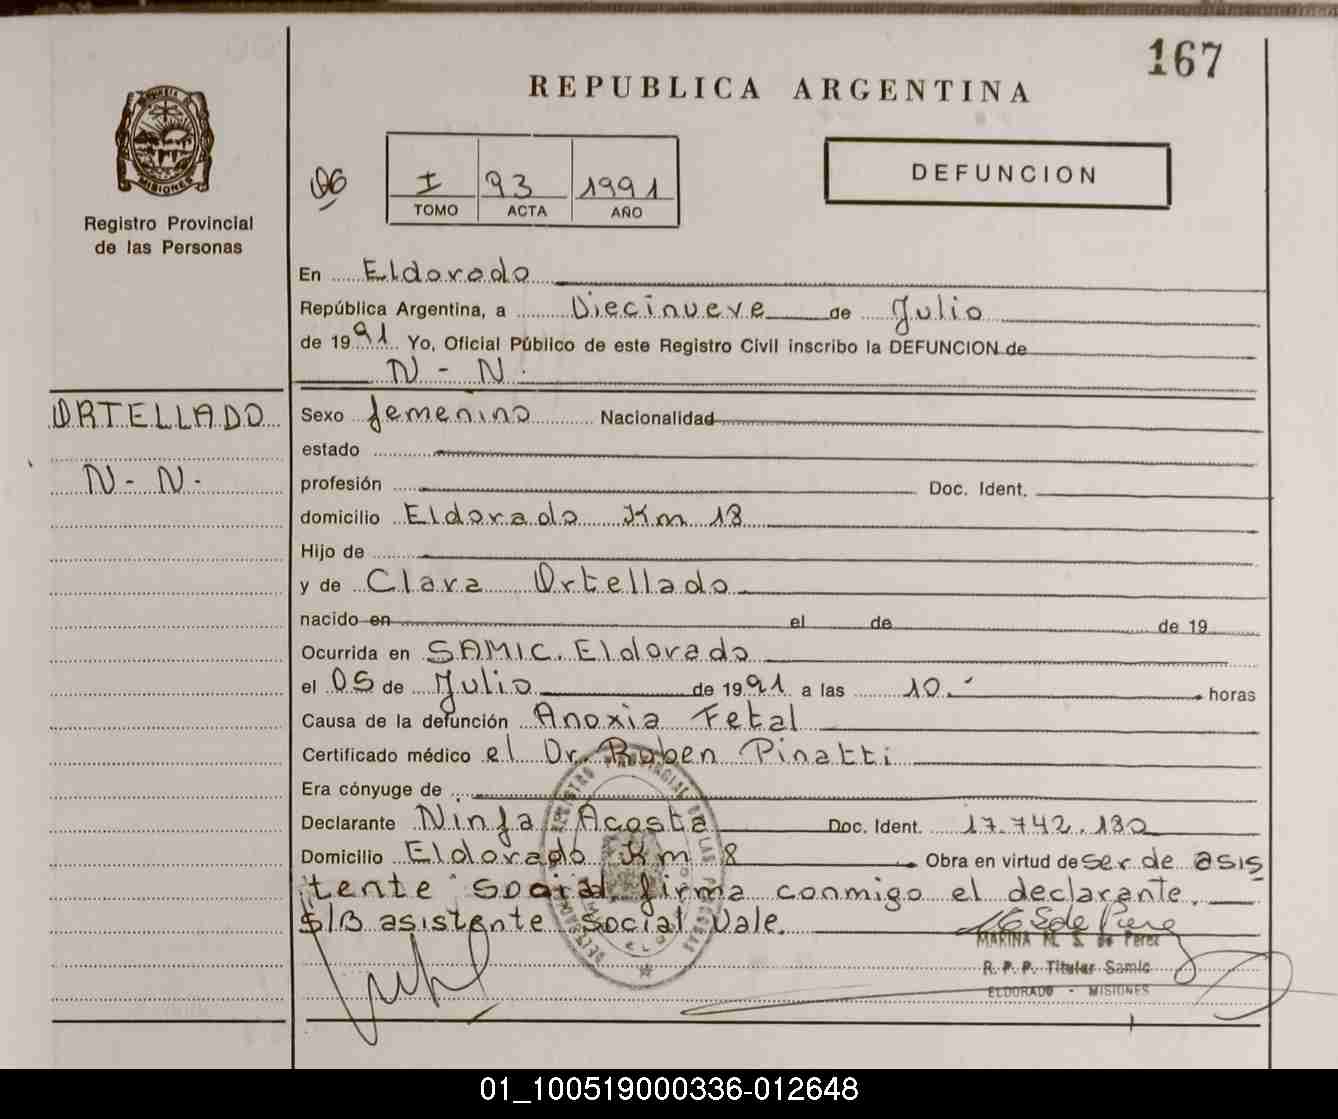 167
REPUBLICA ARGENTINA
MISIONES
Registro Provincial
de las Personas
06
I 93 1991
TOMO ACTA AÑO
DEFUNCION
En Eldorado
República Argentina, a Diecinueve de Julio
de 1991 Yo, Oficial Público de este Registro Civil inscribo la DEFUNCION de
N - N.
ORTELLADO
N - N.
Sexo femenino Nacionalidad
estado
profesión Doc. Ident.
domicilio Eldorado Km 18
Hijo de
y de Clara Ortellado
nacido en el de de 19
Ocurrida en SAMIC. Eldorado
el 05 de Julio de 1991 a las 10.- horas
Causa de la defunción Anoxia Fetal
Certificado médico el Dr. Ruben Pinatti
Era cónyuge de
Declarante Ninfa Acosta Doc. Ident. 17.742.130
Domicilio Eldorado Km 8 Obra en virtud de ser de asis
tente social firma conmigo el declarante.
S/B asistente social Vale.
MARINA M. S. de Perez
R. P. P. Titular Samic
ELDORADO - MISIONES
REGISTRO PROVINCIAL DE LAS PERSONAS
01_100519000336-012648